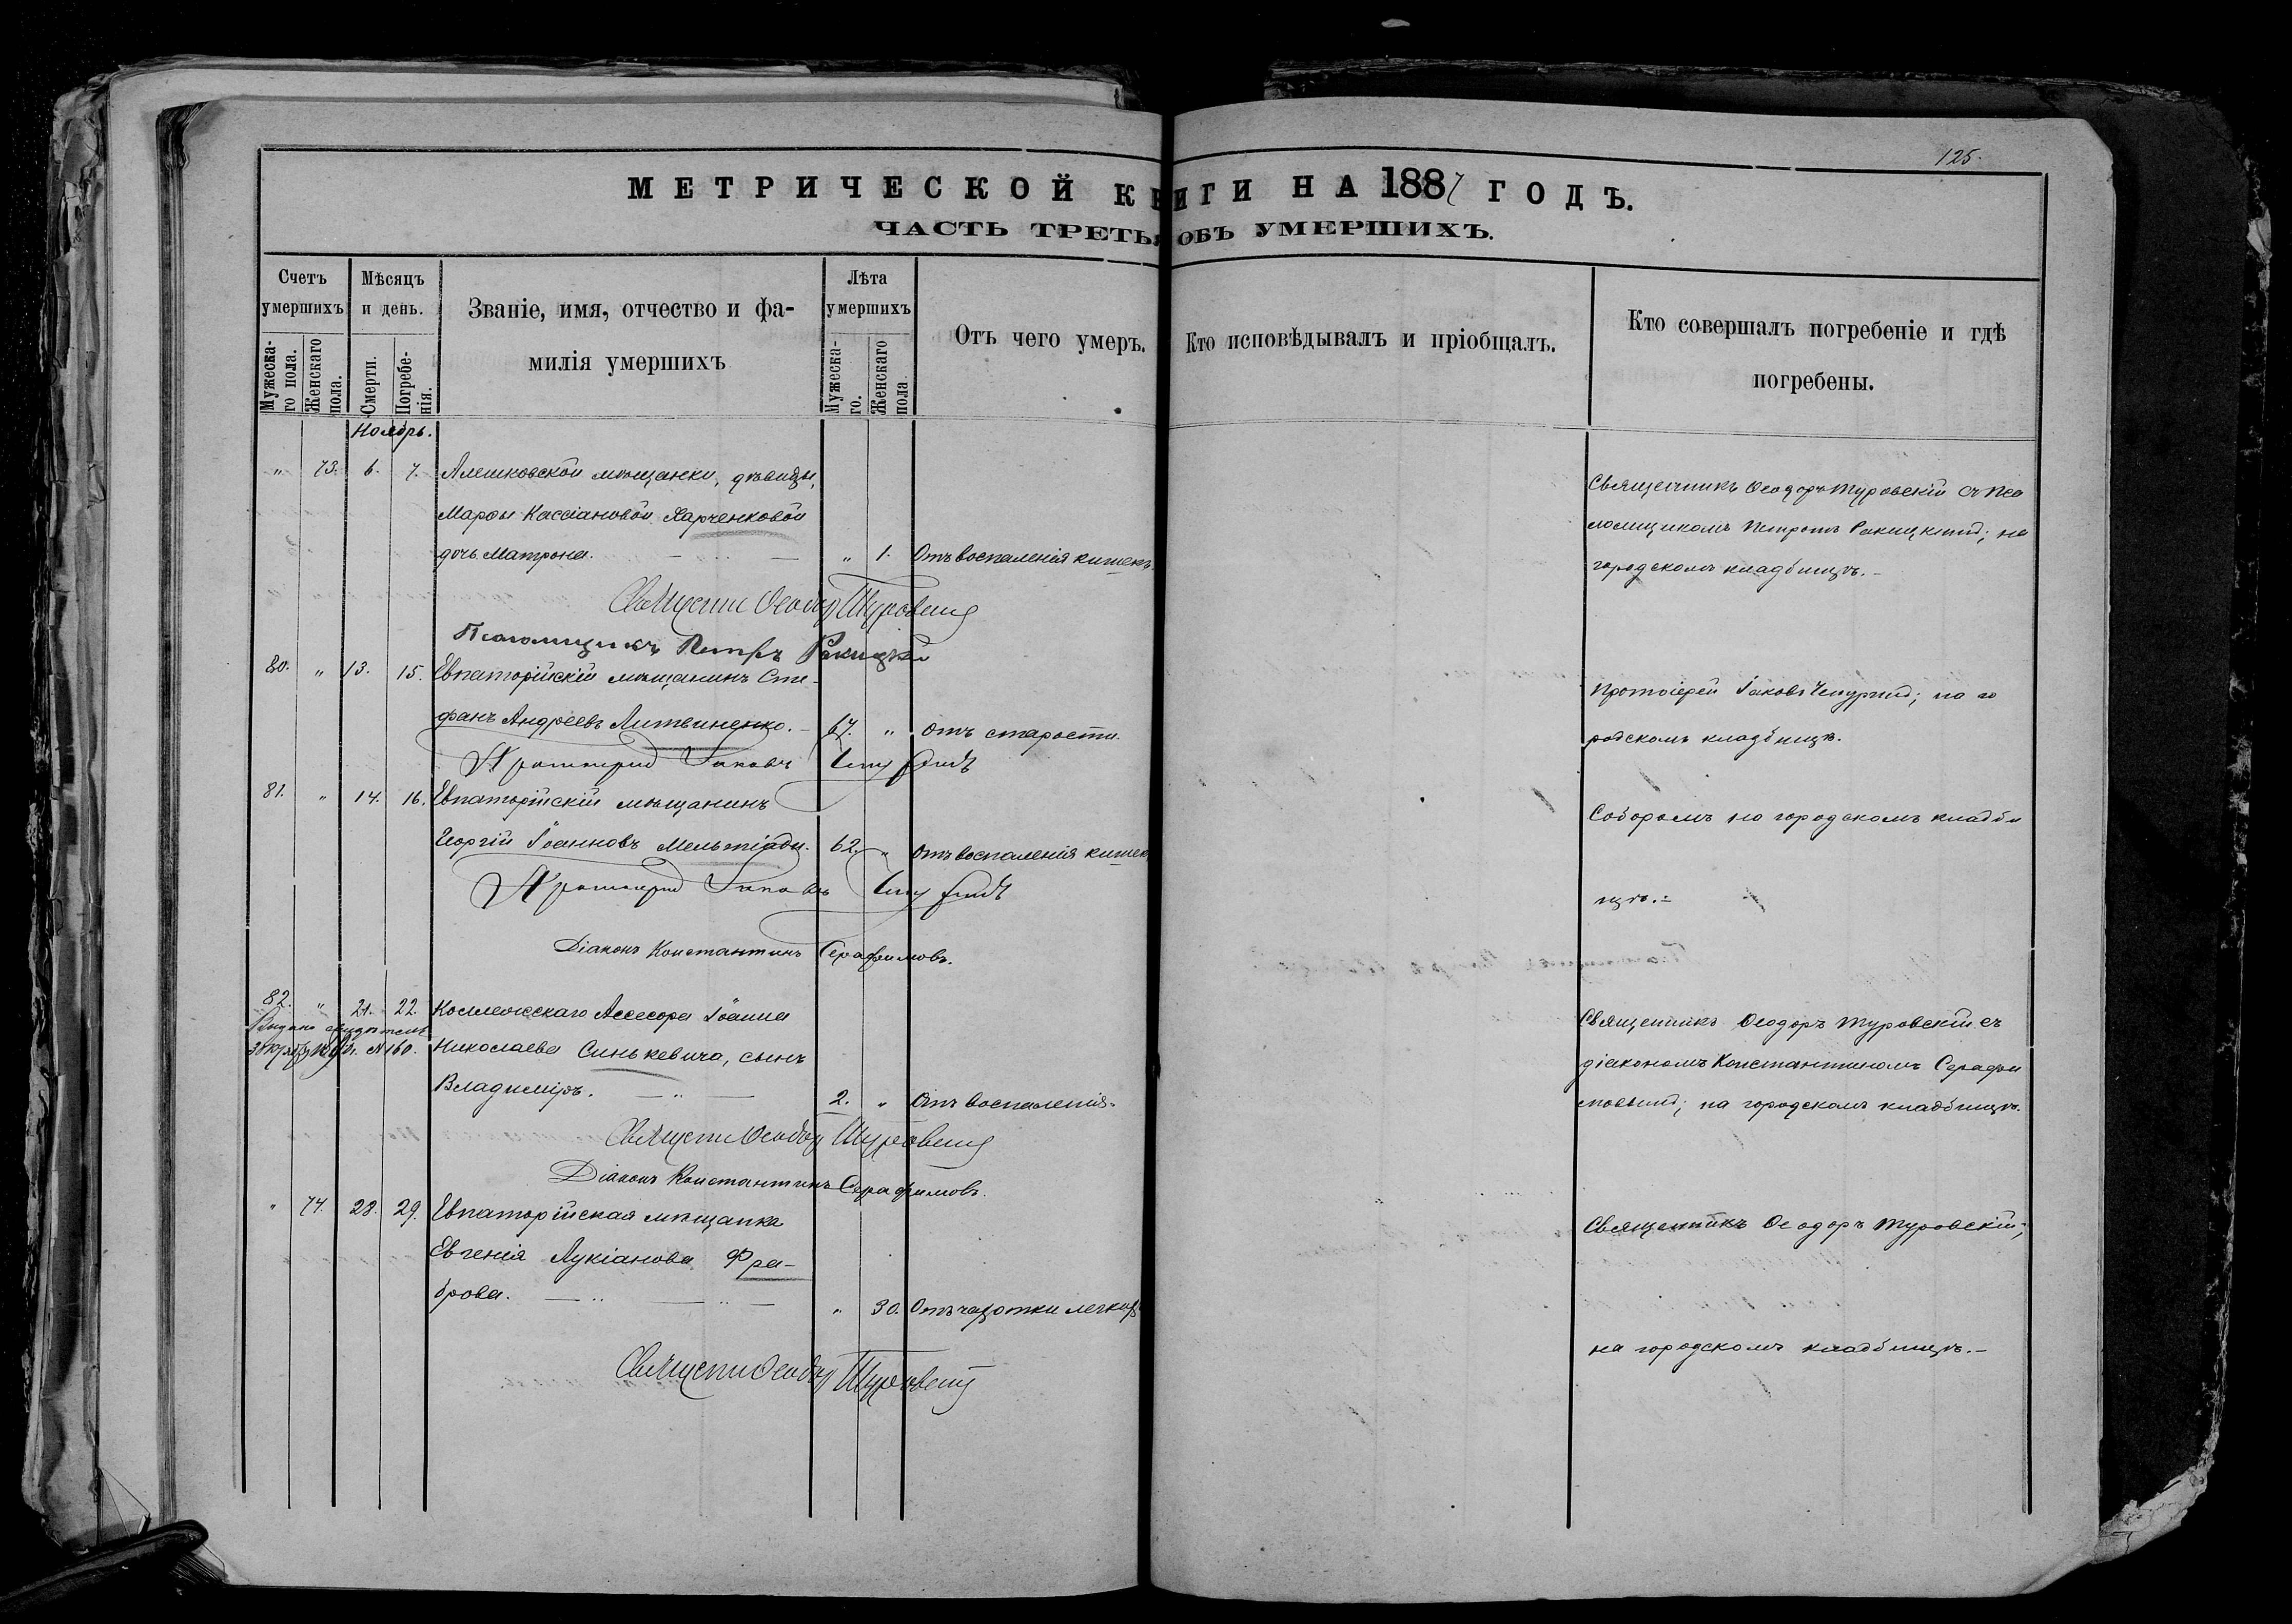 125.
МЕТРИЧЕСКОЙ КНИГИ НА 1887 ГОДЪ.
ЧАСТЬ ТРЕТЬЯ ОБЪ УМЕРШИХЪ.
Счетъ умершихъ.
Мужеска-го пола.
Женскаго пола.
Мѣсяцъ и день.
Смерти.
Погребе-нія.
Званіе, имя, отчество и фа-
милія умершихъ
Лѣта умершихъ
Мужеска-го.
Женскаго пола.
Отъ чего умеръ.
Кто исповѣдывалъ и пріобщалъ.
Кто совершалъ погребеніе и гдѣ
погребены.
Ноябрь.
" 73. 6. 7. Алешковской мѣщанки, дѣвицы,
Марѳы Кассіановой Харченковой
дочь Матрона. " 1. Отъ воспаленія кишекъ.
Священникъ Ѳеодоръ Туровскій съ Пса
ломщикомъ Петромъ Ракицкимъ; на
городскомъ кладбищѣ.
Священн Ѳеодор Туровскій
Псаломщикъ Петръ Ракицкій
80. " 13. 15. Евпаторійскій мѣщанинъ Сте-
фанъ Андреевъ Литвиненко. 67. " отъ старости.
Протоіерей Іаковъ Чепуринъ; на го
родскомъ кладбищѣ.
Протоіерей Іаковъ Чепуринъ
81. " 14. 16. Евпаторійскій мѣщанинъ
Георгій Іоанновъ Мельтіади. 62. " Отъ воспаленія кишек
Соборомъ на городскомъ кладби
щѣ.
Протоіерей Іаковъ Чепуринъ
Діаконъ Константинъ Серафимовъ.
82. " 21. 22. Коллежскаго Ассесора Іоанна
Выдано свидѣтел
№ 160. Николаева Синькевича, сынъ
Владиміръ. 2. " Отъ воспаленія.
Священникъ Ѳеодоръ Туровскій съ
діакономъ Константиномъ Серафи
мовымъ; на городскомъ кладбищѣ.
Священн Ѳеодор Туровскій
Діаконъ Константинъ Серафимовъ.
" 74. 28. 29. Евпаторійская мѣщанка
Евгенія Лукіанова Фра-
брова. " 30. Отъ чахотки легкихъ
Священникъ Ѳеодоръ Туровскій;
на городскомъ кладбищѣ.
Священн Ѳеодор Туровскій